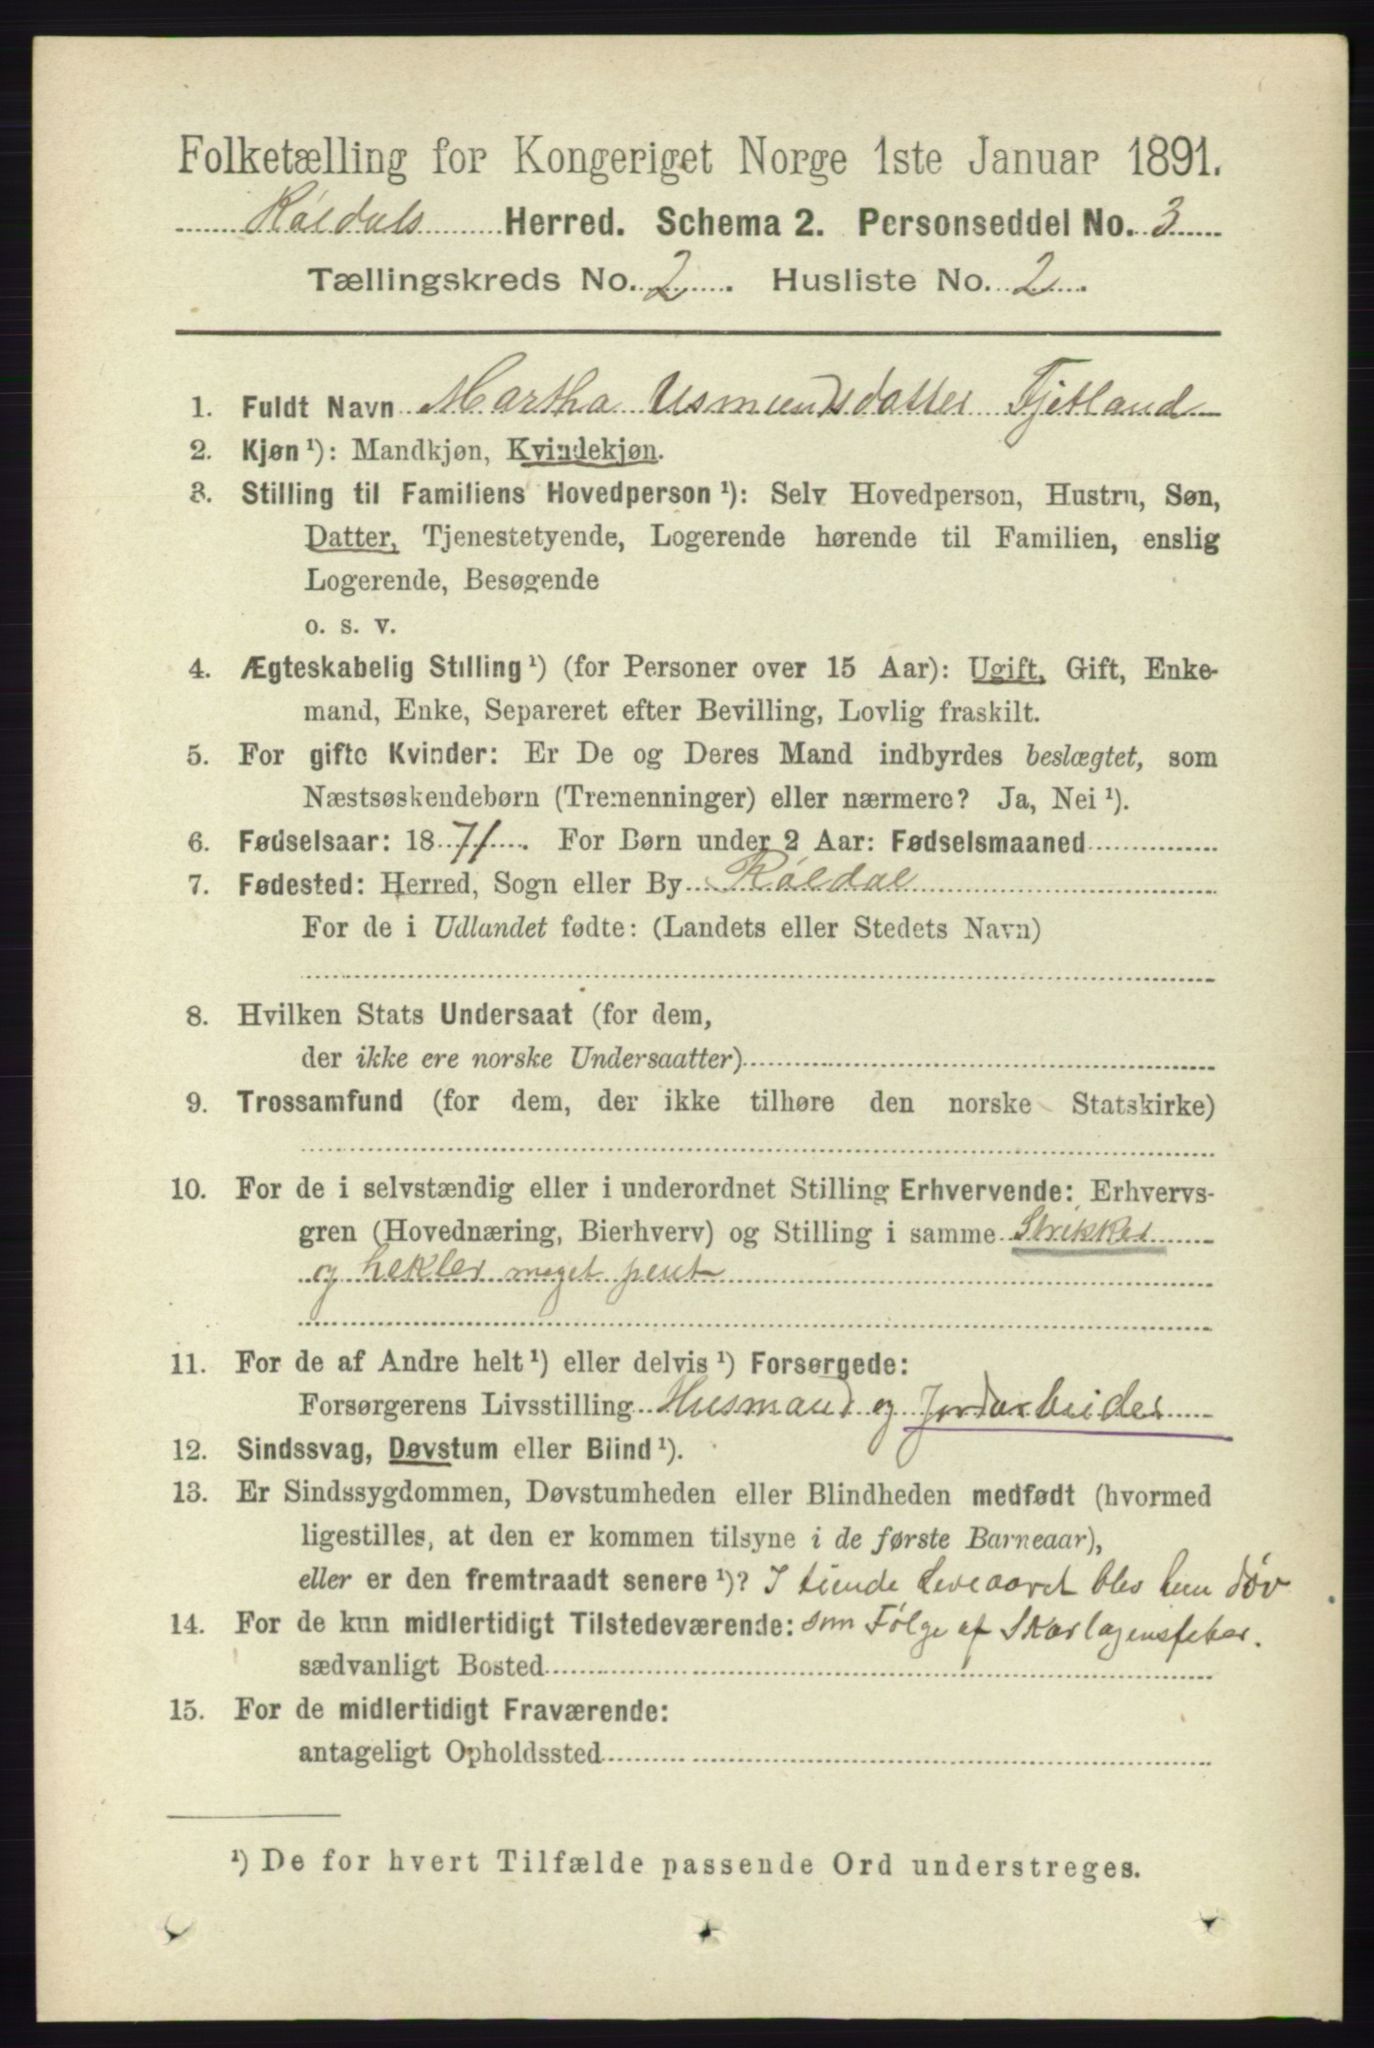 Folketælling for Kongeriget Norge 1ste Januar 1891.
Røldals Herred. Schema 2. Personseddel No. 3
Tællingskreds No. 2. Husliste No. 2.
1. Fuldt Navn Martha Asmundsdatter Fjetland
2. Kjøn ¹): Mandkjøn, Kvindekjøn.
3. Stilling til Familiens Hovedperson ¹): Selv Hovedperson, Hustru, Søn,
Datter, Tjenestetyende, Logerende hørende til Familien, enslig
Logerende, Besøgende
o. s. v.
4. Ægteskabelig Stilling ¹) (for Personer over 15 Aar): Ugift, Gift, Enke-
mand, Enke, Separeret efter Bevilling, Lovlig fraskilt.
5. For gifte Kvinder: Er De og Deres Mand indbyrdes beslægtet, som
Næstsøskendebørn (Tremenninger) eller nærmere? Ja, Nei ¹).
6. Fødselsaar: 1871. For Børn under 2 Aar: Fødselsmaaned
7. Fødested: Herred, Sogn eller By Røldal
For de i Udlandet fødte: (Landets eller Stedets Navn)
8. Hvilken Stats Undersaat (for dem,
der ikke ere norske Undersaatter)
9. Trossamfund (for dem, der ikke tilhøre den norske Statskirke)
10. For de i selvstændig eller i underordnet Stilling Erhvervende: Erhvervs-
gren (Hovednæring, Bierhverv) og Stilling i samme Strikker
og hekler meget pent
11. For de af Andre helt ¹) eller delvis ¹) Forsørgede:
Forsørgerens Livsstilling Husmand og Jordarbeider
12. Sindssvag, Døvstum eller Blind ¹).
13. Er Sindssygdommen, Døvstumheden eller Blindheden medfødt (hvormed
ligestilles, at den er kommen tilsyne i de første Barneaar),
eller er den fremtraadt senere ¹)? I tiende Leveaaret blev hun døv
14. For de kun midlertidigt Tilstedeværende: som Følge af Skarlagensfeber.
sædvanligt Bosted
15. For de midlertidigt Fraværende:
antageligt Opholdssted
¹) De for hvert Tilfælde passende Ord understreges.